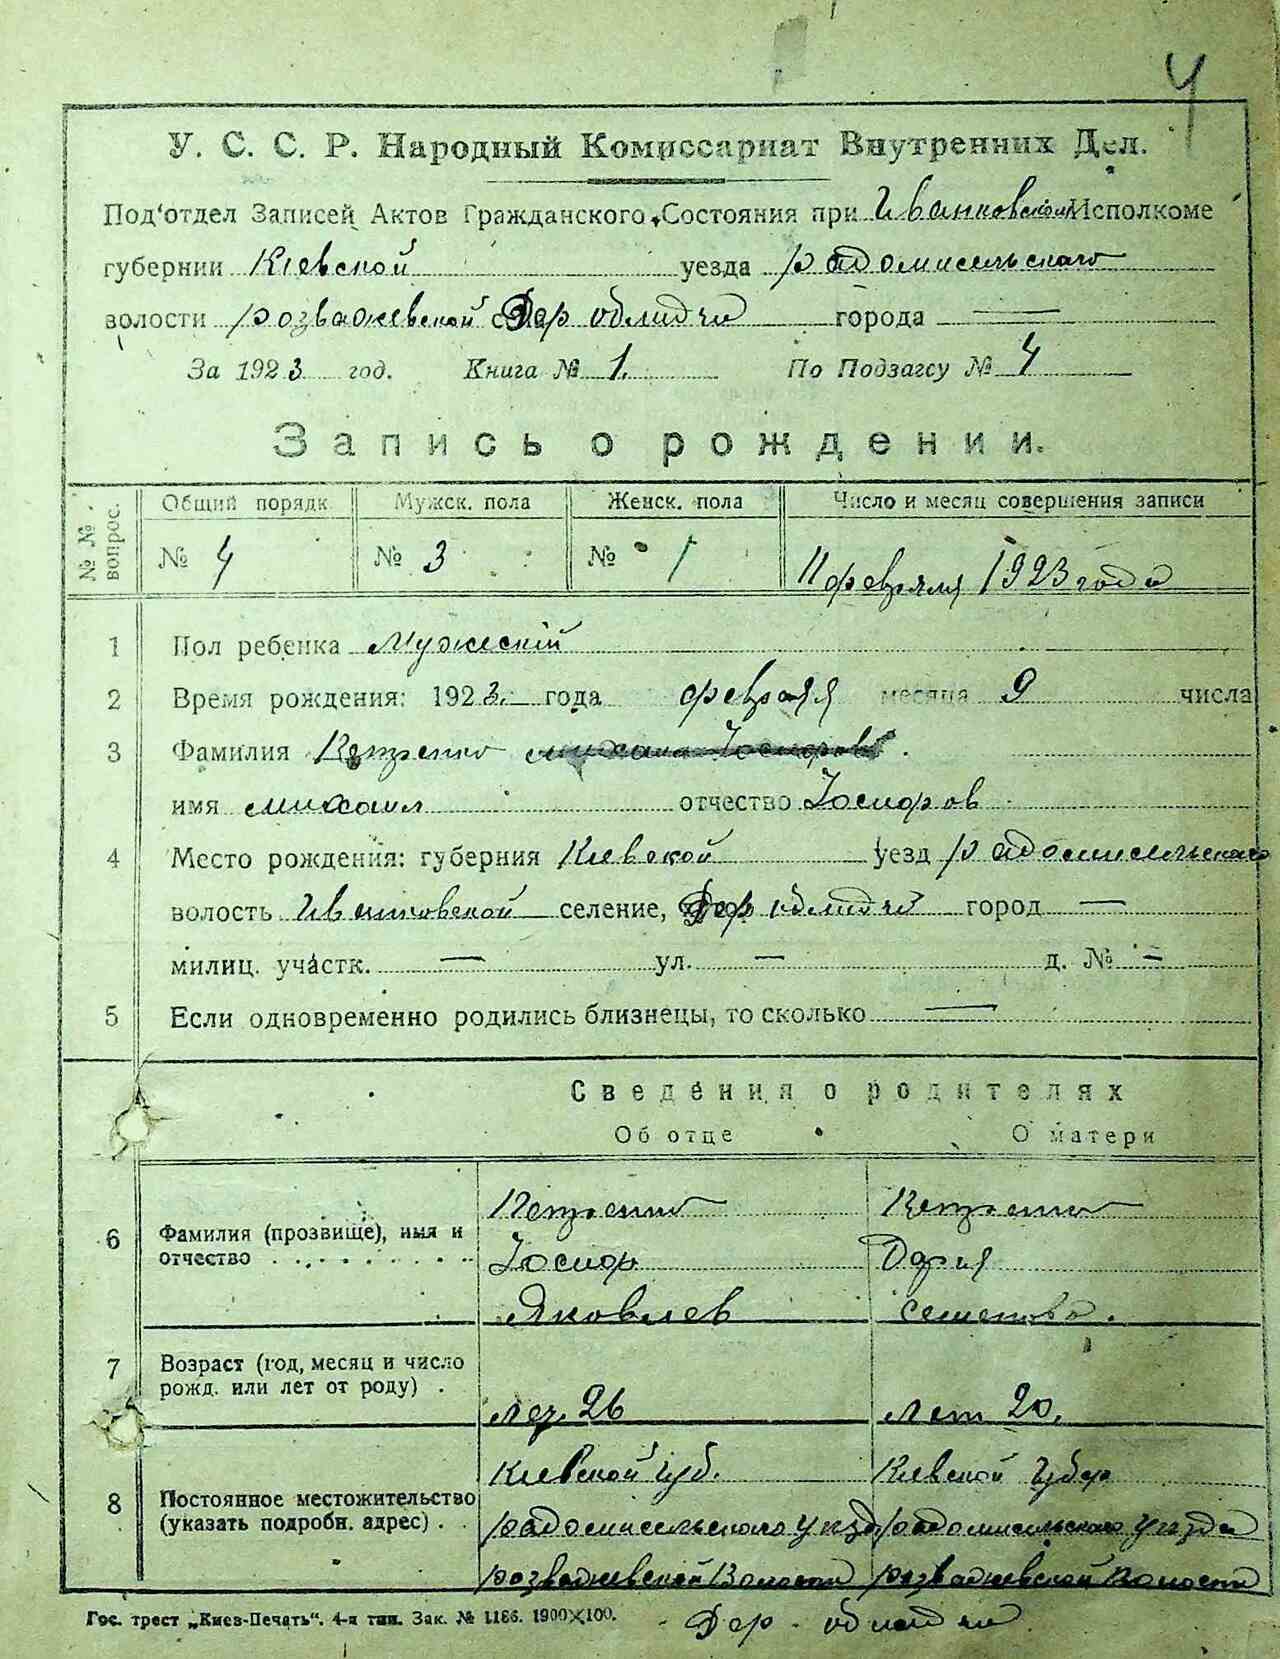 4
У. С. С. Р. Народный Комиссариат Внутренних Дел.
Под'отдел Записей Актов Гражданского Состояния при Иванковском Исполкоме
губернии Кіевской уезда радомисельскаго
волости розважевской Дер облидчи города —
За 1923 год. Книга № 1. По Подзагсу № 4
Запись о рождении.
№ № вопрос. Общий порядк Мужск. пола Женск. пола Число и месяц совершения записи
№ 4 № 3 № 1 11 февраля 1923 года
1 Пол ребенка Мужескій
2 Время рождения: 1923. года февраля месяца 9 числа
3 Фамилия Петренко михаил Іосифов.
имя михаил отчество Іосифов
4 Место рождения: губерния Кіевской уезд радомисельскаго
волость Иванковской селение, Дер облидчи город —
милиц. участк. — ул. — д. № —
5 Если одновременно родились близнецы, то сколько —
Сведения о родителях
Об отце О матери
6 Фамилия (прозвище), имя и отчество . . . . . . . . .
Петренко Петренко
Іосиф Дария
Яковлев семенова.
7 Возраст (год, месяц и число рожд. или лет от роду) .
лет. 26 лет 20.
8 Постоянное местожительство (указать подробн. адрес) . .
Киевской губ. Киевской губер
радомисельскаго уезда радомисельскаго уезда
розважевской Волости розважевской Волости
Гос. трест „Киев-Печать“. 4-я тип. Зак. № 1186. 1900×100. Дер. облидчи